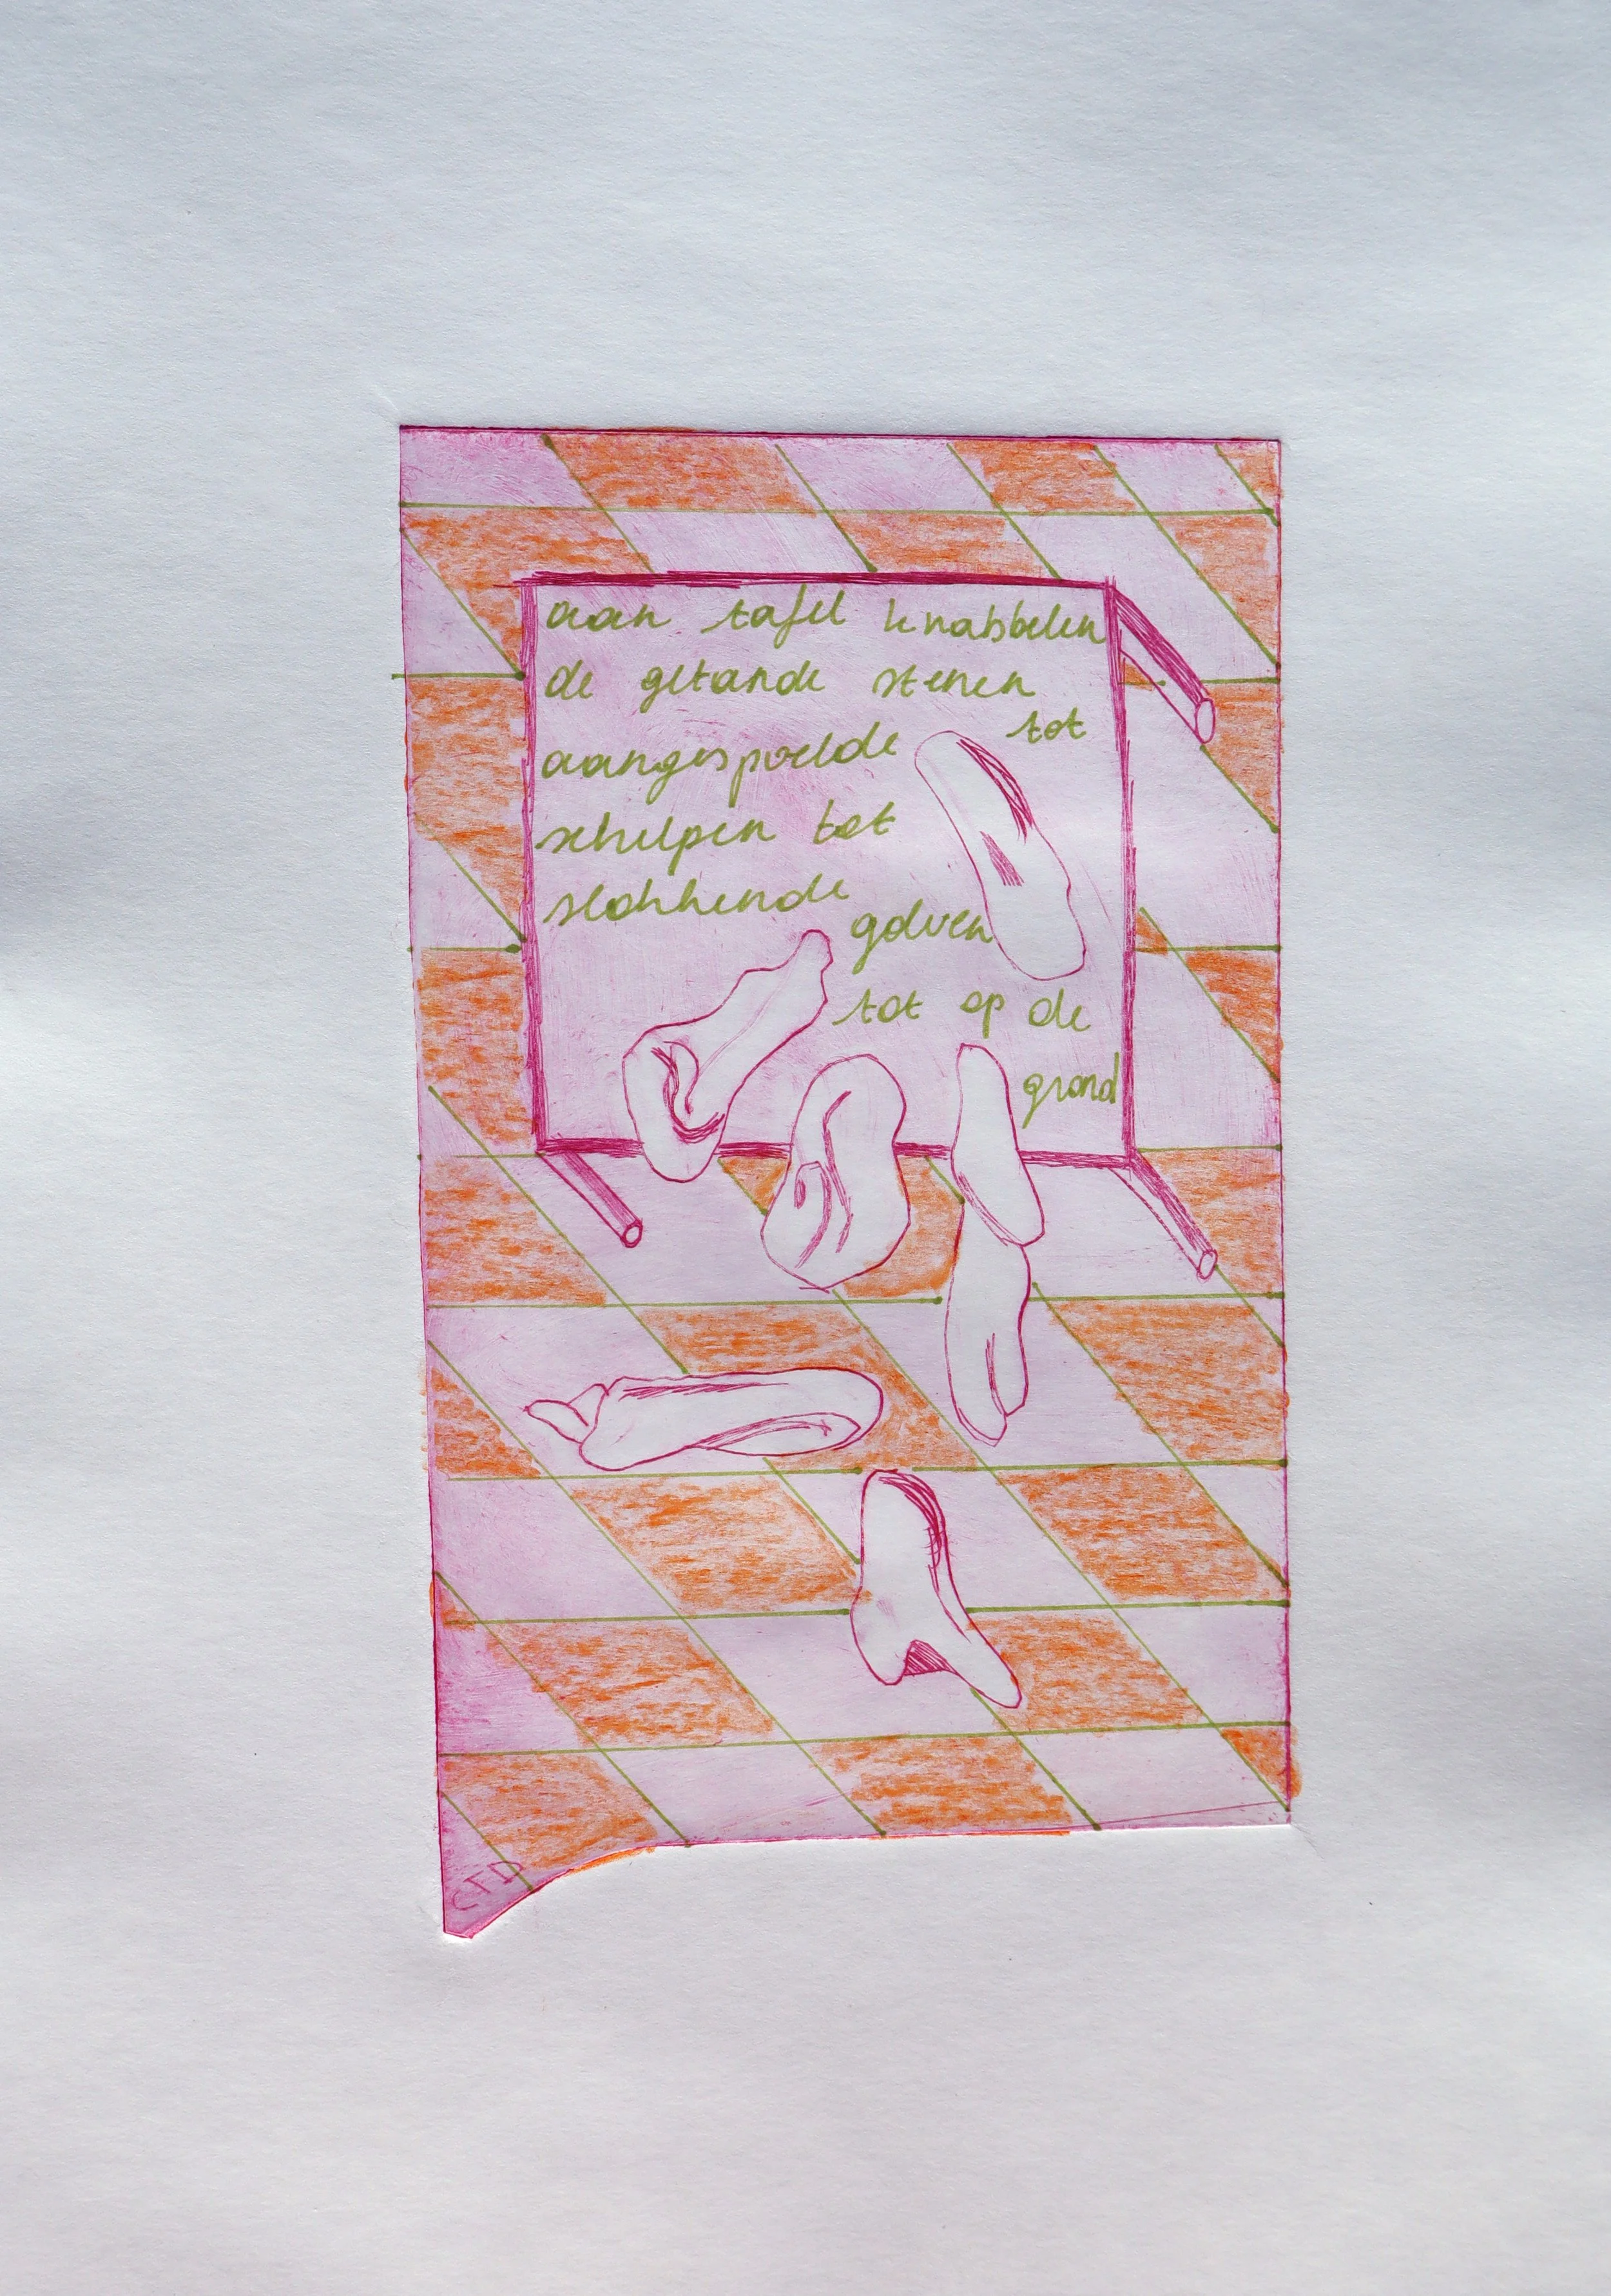 aan tafel knabbelen
de getande stenen
tot
aangespoelde
schelpen tot
slokkende
golven
tot op de
grond
CTD